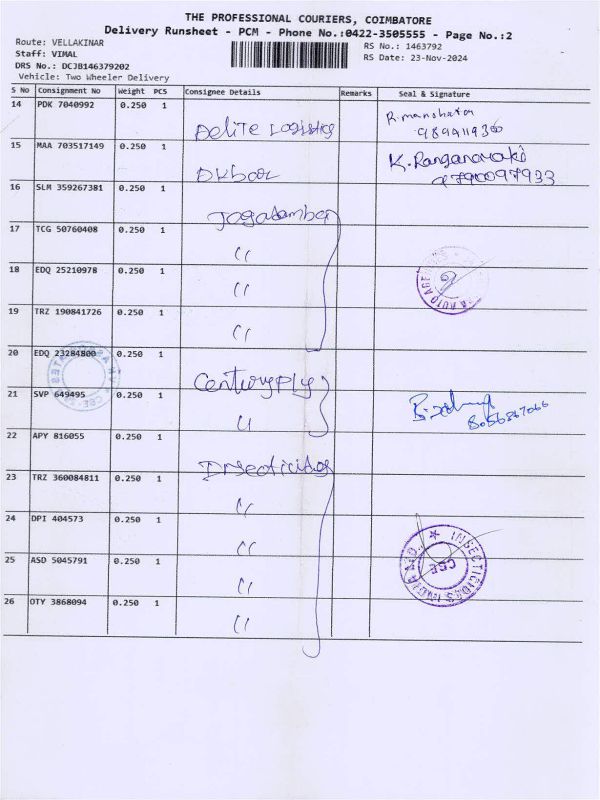 THE PROFESSIONAL COURIERS, COIMBATORE
Delivery Runsheet - PCM - Phone No.:0422-3505555 - Page No.:2
Route: VELLAKINAR
RS No.: 1463792
Staff: VIMAL
RS Date: 23-Nov-2024
DRS No.: DCJB146379202
Vehicle: Two Wheeler Delivery
S No Consignment No Weight PCS Consignee Details Remarks Seal & Signature
14 PDK 7040992 0.250 1 Delite Logistics
15 MAA 703517149 0.250 1 K. Ranganayaki
9790097933
16 SLM 359267381 0.250 1 Jagatamba
17 TCG 50760408 0.250 1 "
18 EDQ 25210978 0.250 1 "
19 TRZ 190841726 0.250 1 "
20 EDQ 23284800 0.250 1 CenturyPly
21 SVP 649495 0.250 1 "
8056867066
22 APY 816055 0.250 1 Insecticides
23 TRZ 360084811 0.250 1 "
24 DPI 404573 0.250 1 "
25 ASD 5045791 0.250 1 "
INSECTICIDES INDIA LTD.
CBE
26 OTY 3868094 0.250 1 "